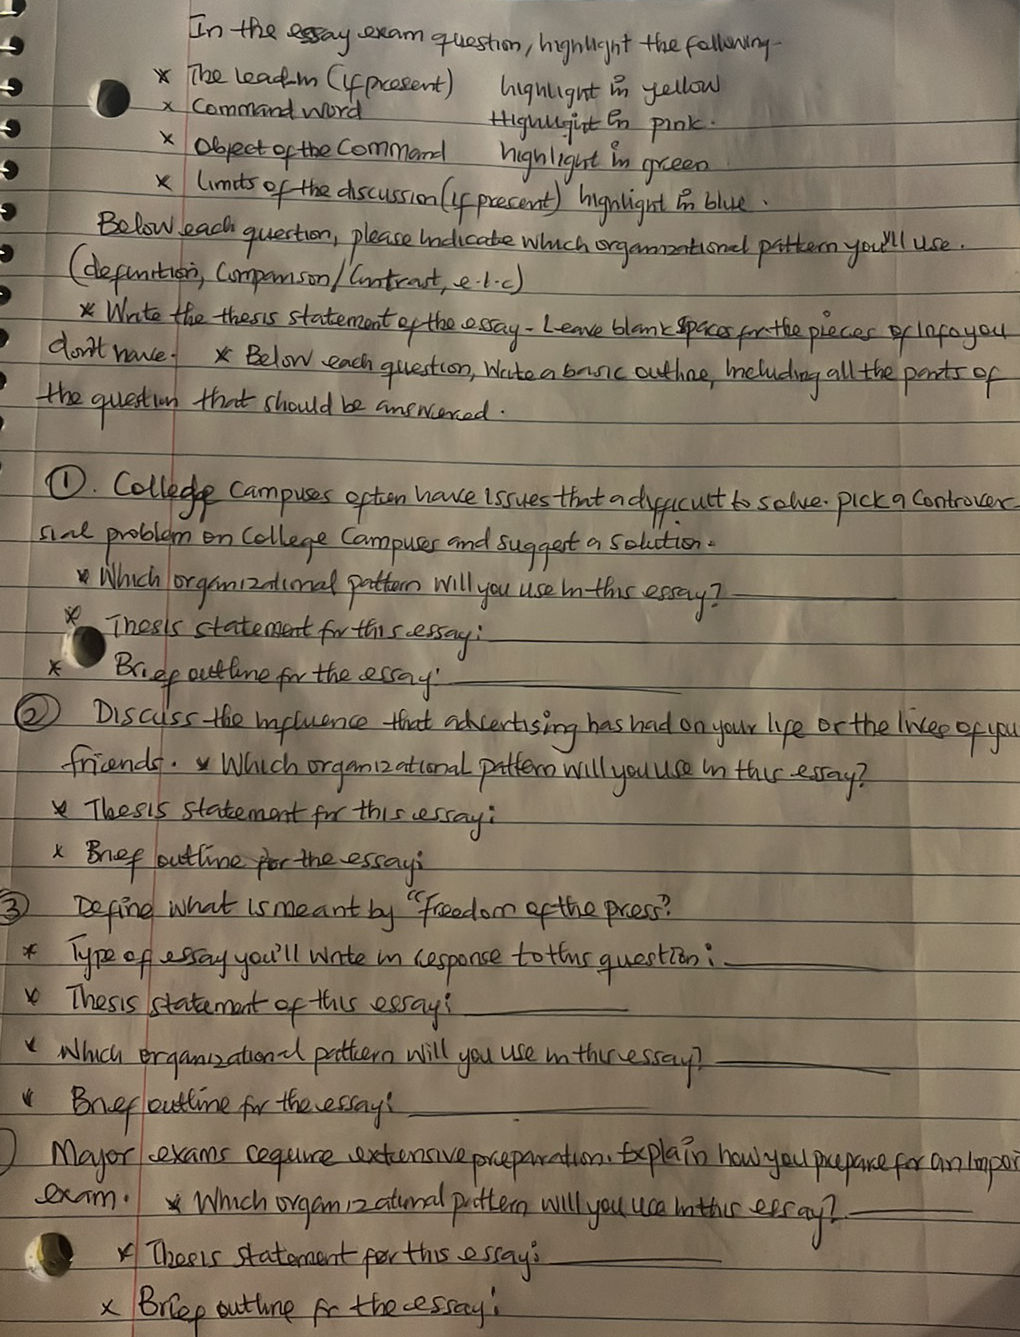 In the essay exam question, highlight the following-
* The lead-in (if present) highlight in yellow
* Command word Highlight in pink.
* Object of the Command highlight in green
* Limits of the discussion (if present) highlight in blue.
Below each question, please indicate which organizational pattern you'll use.
(definition, Comparison/Contrast, e.t.c)
* Write the thesis statement of the essay - Leave blank spaces for the pieces of info you
don't have. * Below each question, write a basic outline, including all the parts of
the question that should be answered.
①. College Campuses often have issues that a difficult to solve. pick a controver-
sial problem on College Campuses and suggest a solution.
* Which organizational pattern will you use in this essay?
* Thesis statement for this essay:
* Brief outline for the essay:
② Discuss the influence that advertising has had on your life or the lives of you
friends. * Which organizational pattern will you use in this essay?
* Thesis statement for this essay:
* Brief outline for the essay:
③ Define what is meant by "freedom of the press?
* Type of essay you'll write in response to this question:
* Thesis statement of this essay:
* Which organizational pattern will you use in this essay?
* Brief outline for the essay:
Major exams require extensive preparation. Explain how you prepare for an impor
exam. * Which organizational pattern will you use in this essay?
* Thesis statement for this essay:
* Brief outline for the essay: